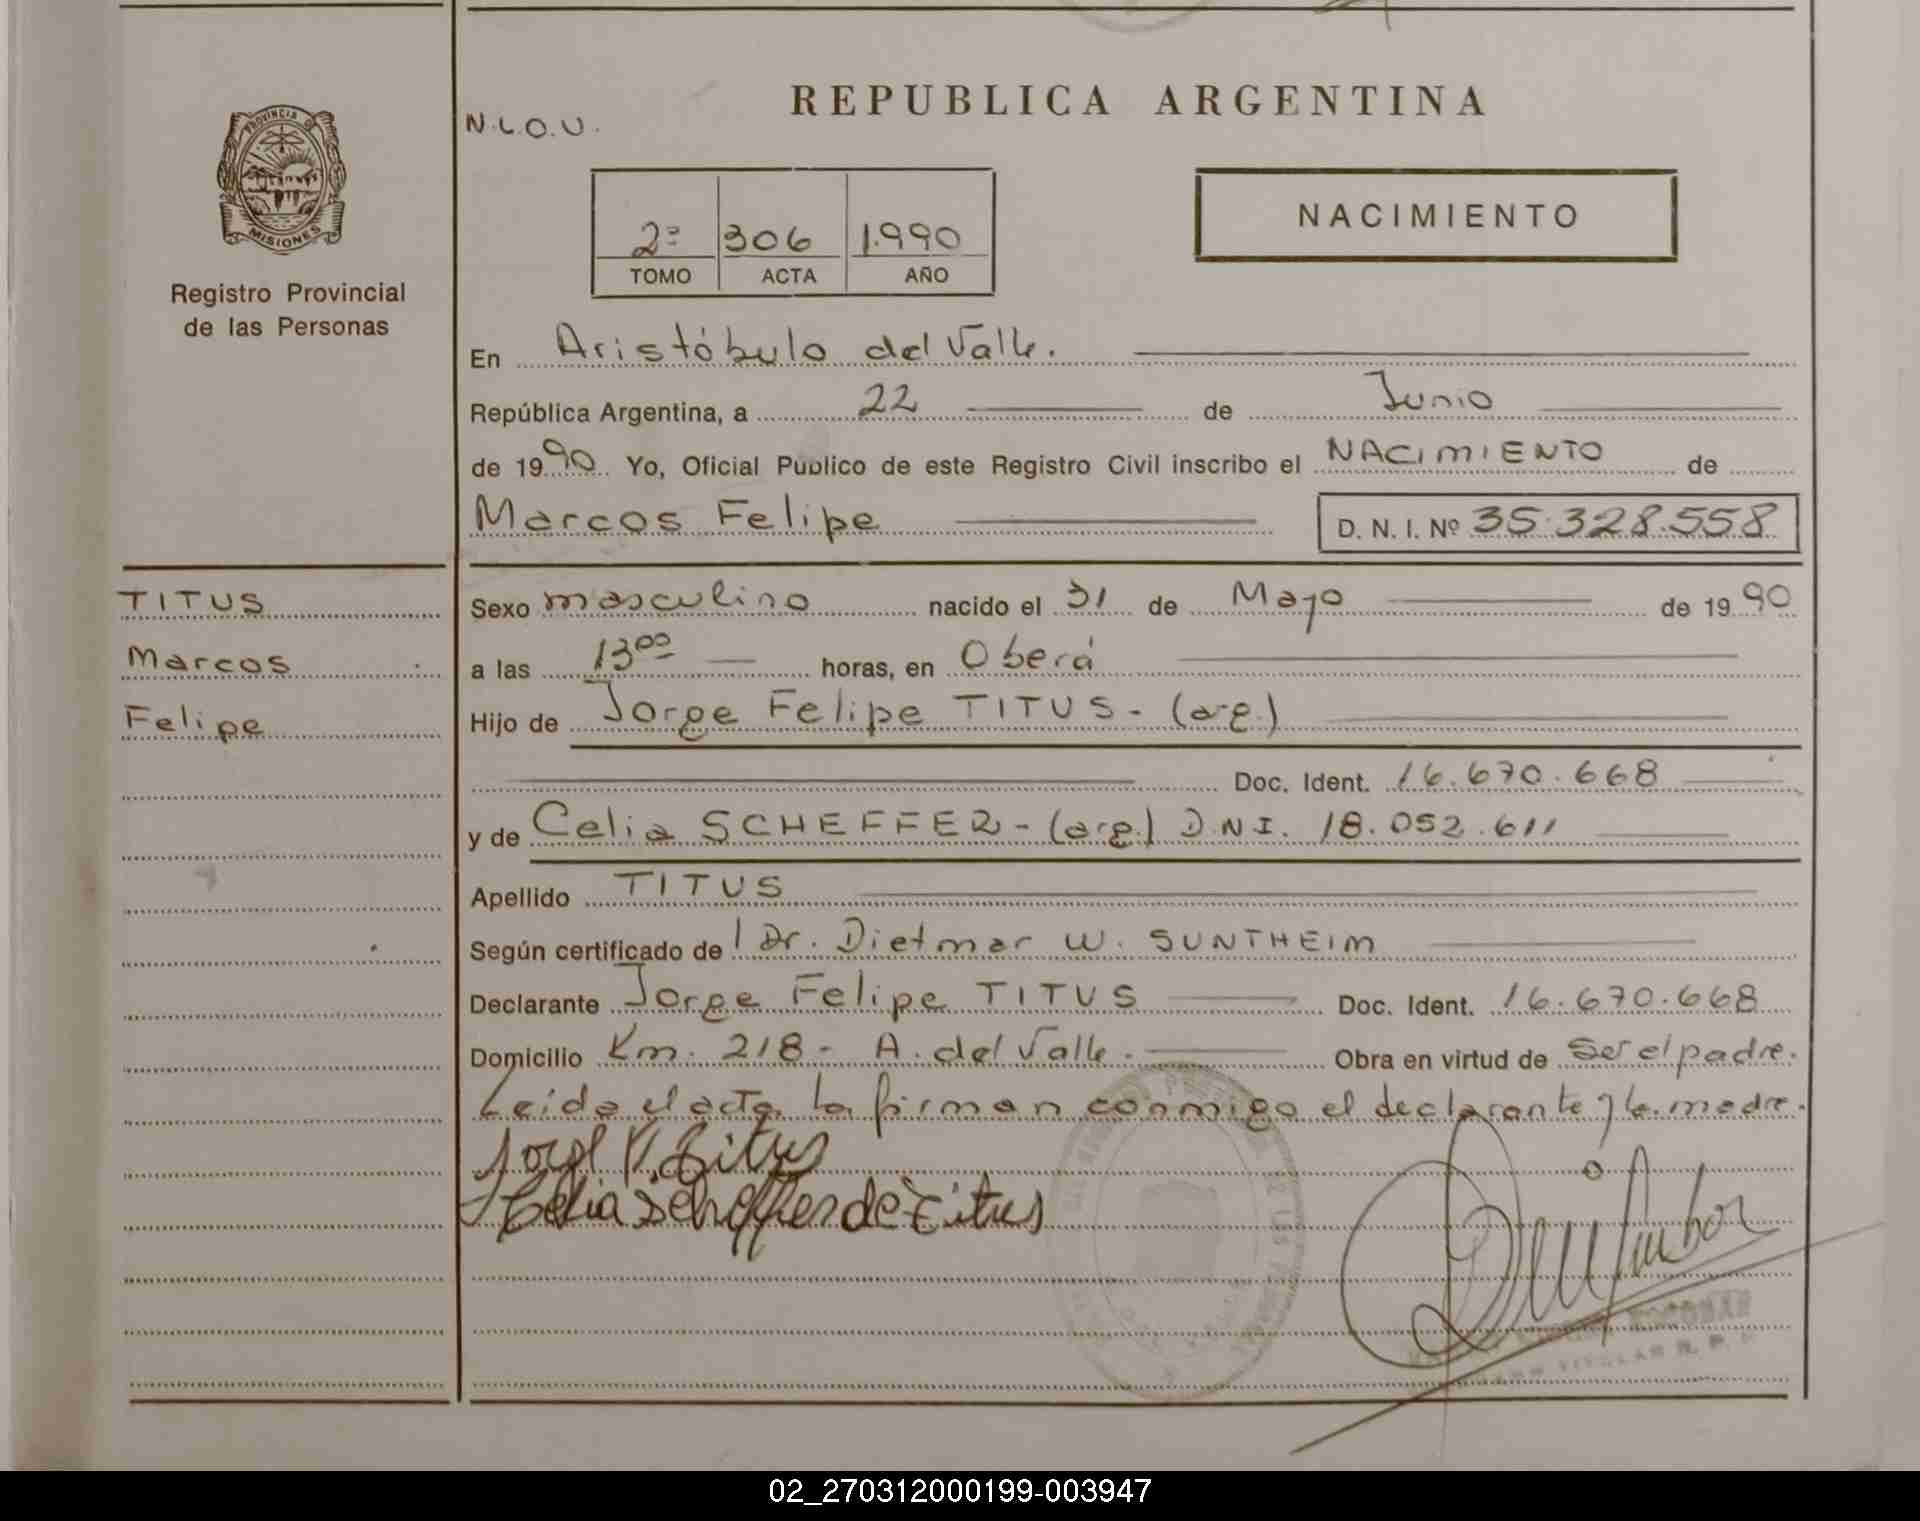 PROVINCIA D
MISIONES
Registro Provincial
de las Personas
TITUS
Marcos
Felipe
REPUBLICA ARGENTINA
N.L.O.U.
2º 306 1.990
TOMO ACTA AÑO
NACIMIENTO
En Aristóbulo del Valle.
República Argentina, a 22 de Junio
de 1990 Yo, Oficial Público de este Registro Civil inscribo el NACIMIENTO de
Marcos Felipe D. N. I. Nº 35.328.558
Sexo masculino nacido el 31 de Mayo de 1990
a las 13⁰⁰ horas, en Oberá
Hijo de Jorge Felipe TITUS - (arg.)
Doc. Ident. 16.670.668
y de Celia SCHEFFER - (arg.) D.N.I. 18.052.611
Apellido TITUS
Según certificado de Dr. Dietmar W. SUNTHEIM
Declarante Jorge Felipe TITUS Doc. Ident. 16.670.668
Domicilio Km. 218 - A. del Valle. Obra en virtud de Ser el padre.
Leída el acta la firman conmigo el declarante y la madre.
Jorge F. Titus
Celia Scheffer de Titus
02_270312000199-003947